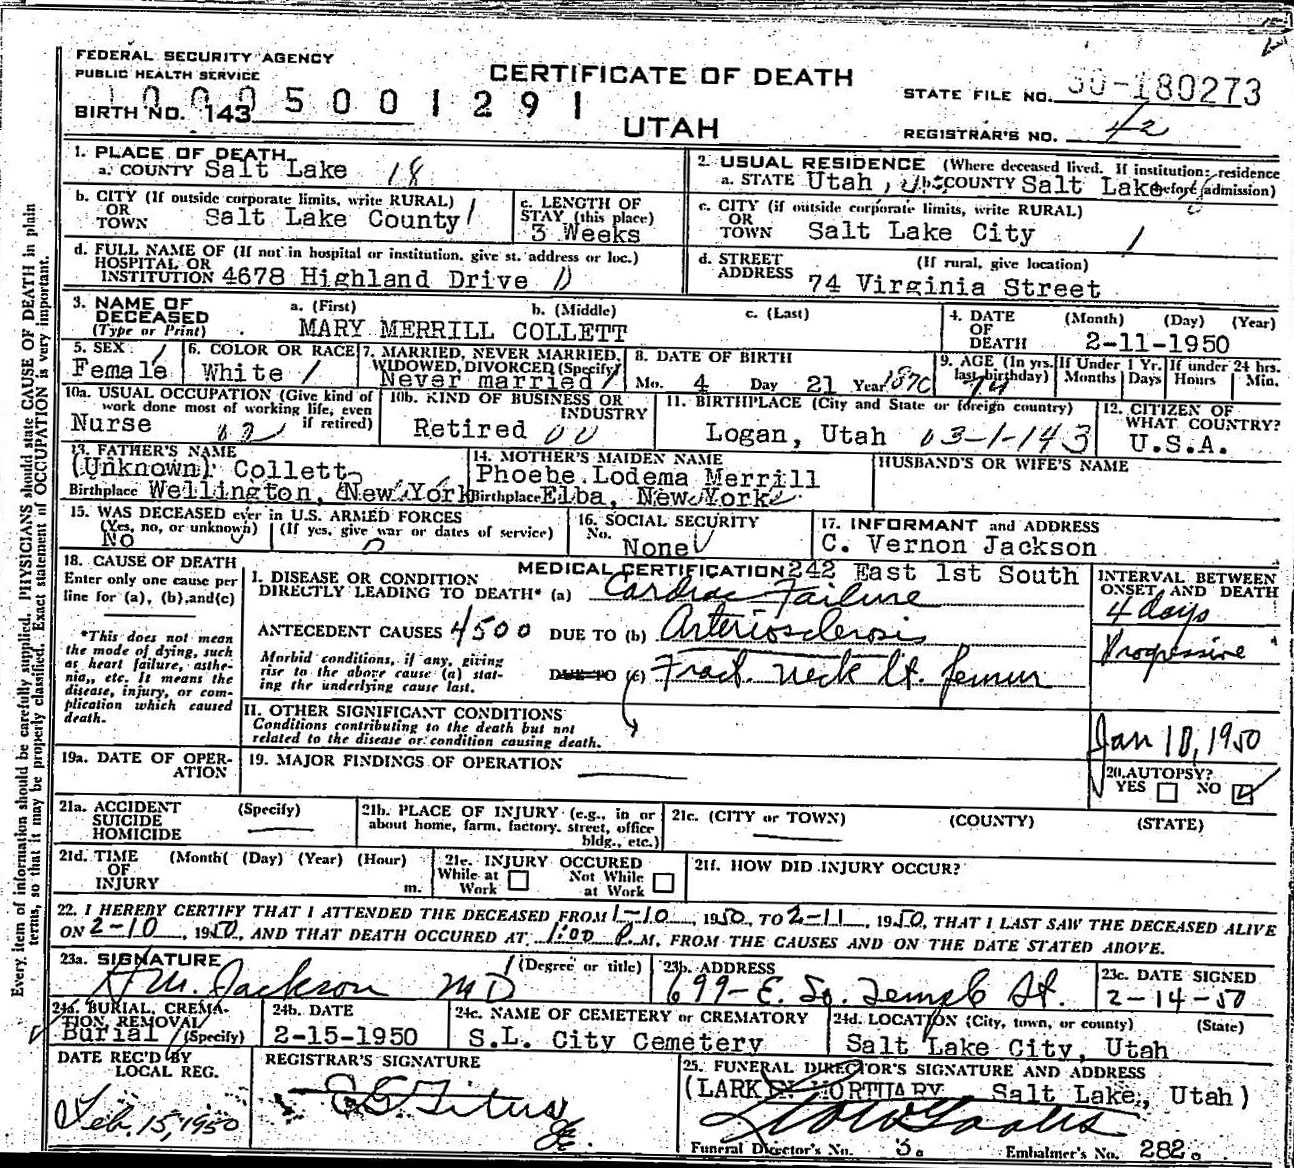 FEDERAL SECURITY AGENCY
PUBLIC HEALTH SERVICE
CERTIFICATE OF DEATH
STATE FILE NO. 50-180273
5001291
BIRTH NO. 143
UTAH
REGISTRAR'S NO. 42
1. PLACE OF DEATH
a. COUNTY Salt Lake 18
2. USUAL RESIDENCE (Where deceased lived. If institution: residence before admission)
a. STATE Utah, b. COUNTY Salt Lake
b. CITY (If outside corporate limits, write RURAL)
OR
TOWN Salt Lake County
c. LENGTH OF
STAY (this place)
3 Weeks
c. CITY (if outside corporate limits, write RURAL)
OR
TOWN Salt Lake City
d. FULL NAME OF (If not in hospital or institution, give st. address or loc.)
HOSPITAL OR
INSTITUTION 4678 Highland Drive
d. STREET (If rural, give location)
ADDRESS 74 Virginia Street
3. NAME OF
DECEASED
(Type or Print)
a. (First) b. (Middle) c. (Last)
MARY MERRILL COLLETT
4. DATE (Month) (Day) (Year)
OF
DEATH 2-11-1950
5. SEX
Female
6. COLOR OR RACE
White
7. MARRIED, NEVER MARRIED,
WIDOWED, DIVORCED (Specify)
Never married
8. DATE OF BIRTH
Mo. 4 Day 21 Year
9. AGE (In yrs.
last birthday)
If Under 1 Yr.
Months Days
If under 24 hrs.
Hours Min.
10a. USUAL OCCUPATION (Give kind of
work done most of working life, even
if retired)
Nurse
10b. KIND OF BUSINESS OR
INDUSTRY
Retired
11. BIRTHPLACE (City and State or foreign country)
Logan, Utah 03-1-143
12. CITIZEN OF
WHAT COUNTRY?
U.S.A.
13. FATHER'S NAME
(Unknown) Collett
Birthplace Wellington, New York
14. MOTHER'S MAIDEN NAME
Phoebe Lodema Merrill
Birthplace Elba, New York
HUSBAND'S OR WIFE'S NAME
15. WAS DECEASED ever in U.S. ARMED FORCES
(Yes, no, or unknown) (If yes, give war or dates of service)
No
16. SOCIAL SECURITY
No. None
17. INFORMANT and ADDRESS
C. Vernon Jackson
242 East 1st South
18. CAUSE OF DEATH
Enter only one cause per
line for (a), (b), and (c)
*This does not mean
the mode of dying, such
as heart failure, asthe-
nia,, etc. It means the
disease, injury, or com-
plication which caused
death.
MEDICAL CERTIFICATION
I. DISEASE OR CONDITION
DIRECTLY LEADING TO DEATH* (a) Cardiac Failure
ANTECEDENT CAUSES 4500 DUE TO (b) Arteriosclerosis
Morbid conditions, if any, giving
rise to the above cause (a) stat-
ing the underlying cause last.
DUE TO (c) Fract. neck lt. femur
INTERVAL BETWEEN
ONSET AND DEATH
4 days
Progressive
II. OTHER SIGNIFICANT CONDITIONS
Conditions contributing to the death but not
related to the disease or condition causing death.
Jan 10, 1950
19a. DATE OF OPER-
ATION
19. MAJOR FINDINGS OF OPERATION
20. AUTOPSY?
YES NO
21a. ACCIDENT (Specify)
SUICIDE
HOMICIDE
21b. PLACE OF INJURY (e.g., in or
about home, farm, factory, street, office
bldg., etc.)
21c. (CITY or TOWN) (COUNTY) (STATE)
21d. TIME (Month( (Day) (Year) (Hour)
OF
INJURY m.
21e. INJURY OCCURED
While at Work Not While at Work
21f. HOW DID INJURY OCCUR?
22. I HEREBY CERTIFY THAT I ATTENDED THE DECEASED FROM 1-10, 1950, TO 2-11, 1950, THAT I LAST SAW THE DECEASED ALIVE
ON 2-10, 1950, AND THAT DEATH OCCURED AT 1:00 P. M., FROM THE CAUSES AND ON THE DATE STATED ABOVE.
23a. SIGNATURE (Degree or title)
H M. Jackson MD
23b. ADDRESS
699-E. So. Temple St.
23c. DATE SIGNED
2-14-50
24a. BURIAL, CREMA-
TION, REMOVAL
Burial (Specify)
24b. DATE
2-15-1950
24c. NAME OF CEMETERY or CREMATORY
S.L. City Cemetery
24d. LOCATION (City, town, or county) (State)
Salt Lake City, Utah
DATE REC'D BY
LOCAL REG.
Feb. 15, 1950
REGISTRAR'S SIGNATURE
25. FUNERAL DIRECTOR'S SIGNATURE AND ADDRESS
(LARKIN MORTUARY Salt Lake, Utah)
Funeral Director's No. 3. Embalmer's No. 282.
Every item of information should be carefully supplied. PHYSICIANS should state CAUSE OF DEATH in plain
terms, so that it may be properly classified. Exact statement of OCCUPATION is very important.